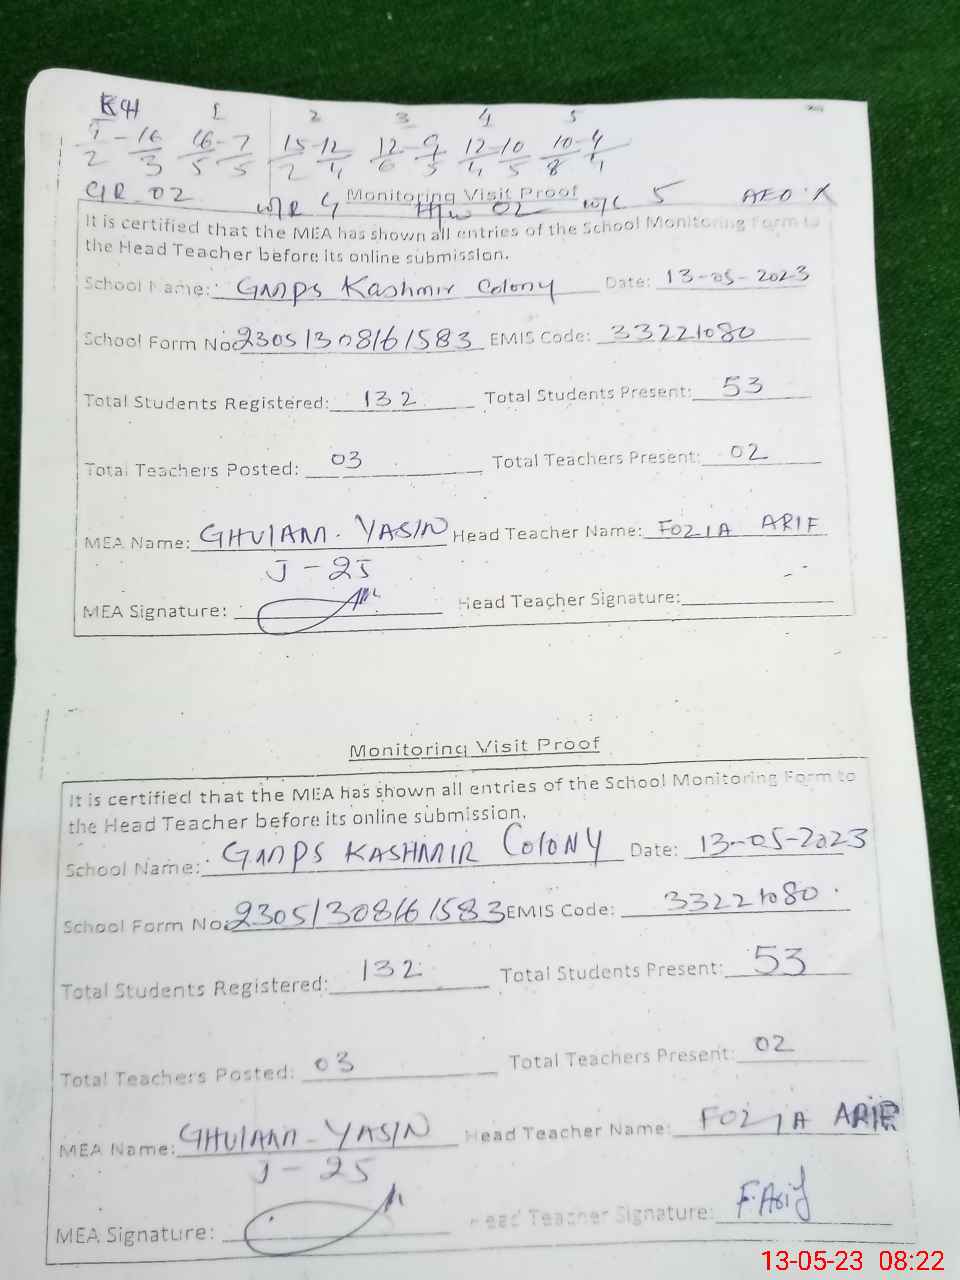 KH 1 2 3 4 5
9/2 - 16/3 16/5 - 7/5 15/2 - 12/4 12/6 - 9/3 12/4 - 10/5 10/8 - 4/4
C/R 02 W/R 4 H/W 02 W/C 5 AEO: X
Monitoring Visit Proof
It is certified that the MEA has shown all entries of the School Monitoring Form to
the Head Teacher before its online submission.
School Name: GMPS Kashmir Colony Date: 13-05-2023
School Form No: 23051308161583 EMIS Code: 33221080
Total Students Registered: 132 Total Students Present: 53
Total Teachers Posted: 03 Total Teachers Present: 02
MEA Name: GHULAM. YASIN Head Teacher Name: FOZIA ARIF
J-25
MEA Signature: Head Teacher Signature:
Monitoring Visit Proof
It is certified that the MEA has shown all entries of the School Monitoring Form to
the Head Teacher before its online submission.
School Name: GMPS KASHMIR COLONY Date: 13-05-2023
School Form No: 23051308161583 EMIS Code: 33221080
Total Students Registered: 132 Total Students Present: 53
Total Teachers Posted: 03 Total Teachers Present: 02
MEA Name: GHULAM - YASIN Head Teacher Name: FOZIA ARIF
J-25
MEA Signature: Head Teacher Signature: F.Arif
13-05-23 08:22